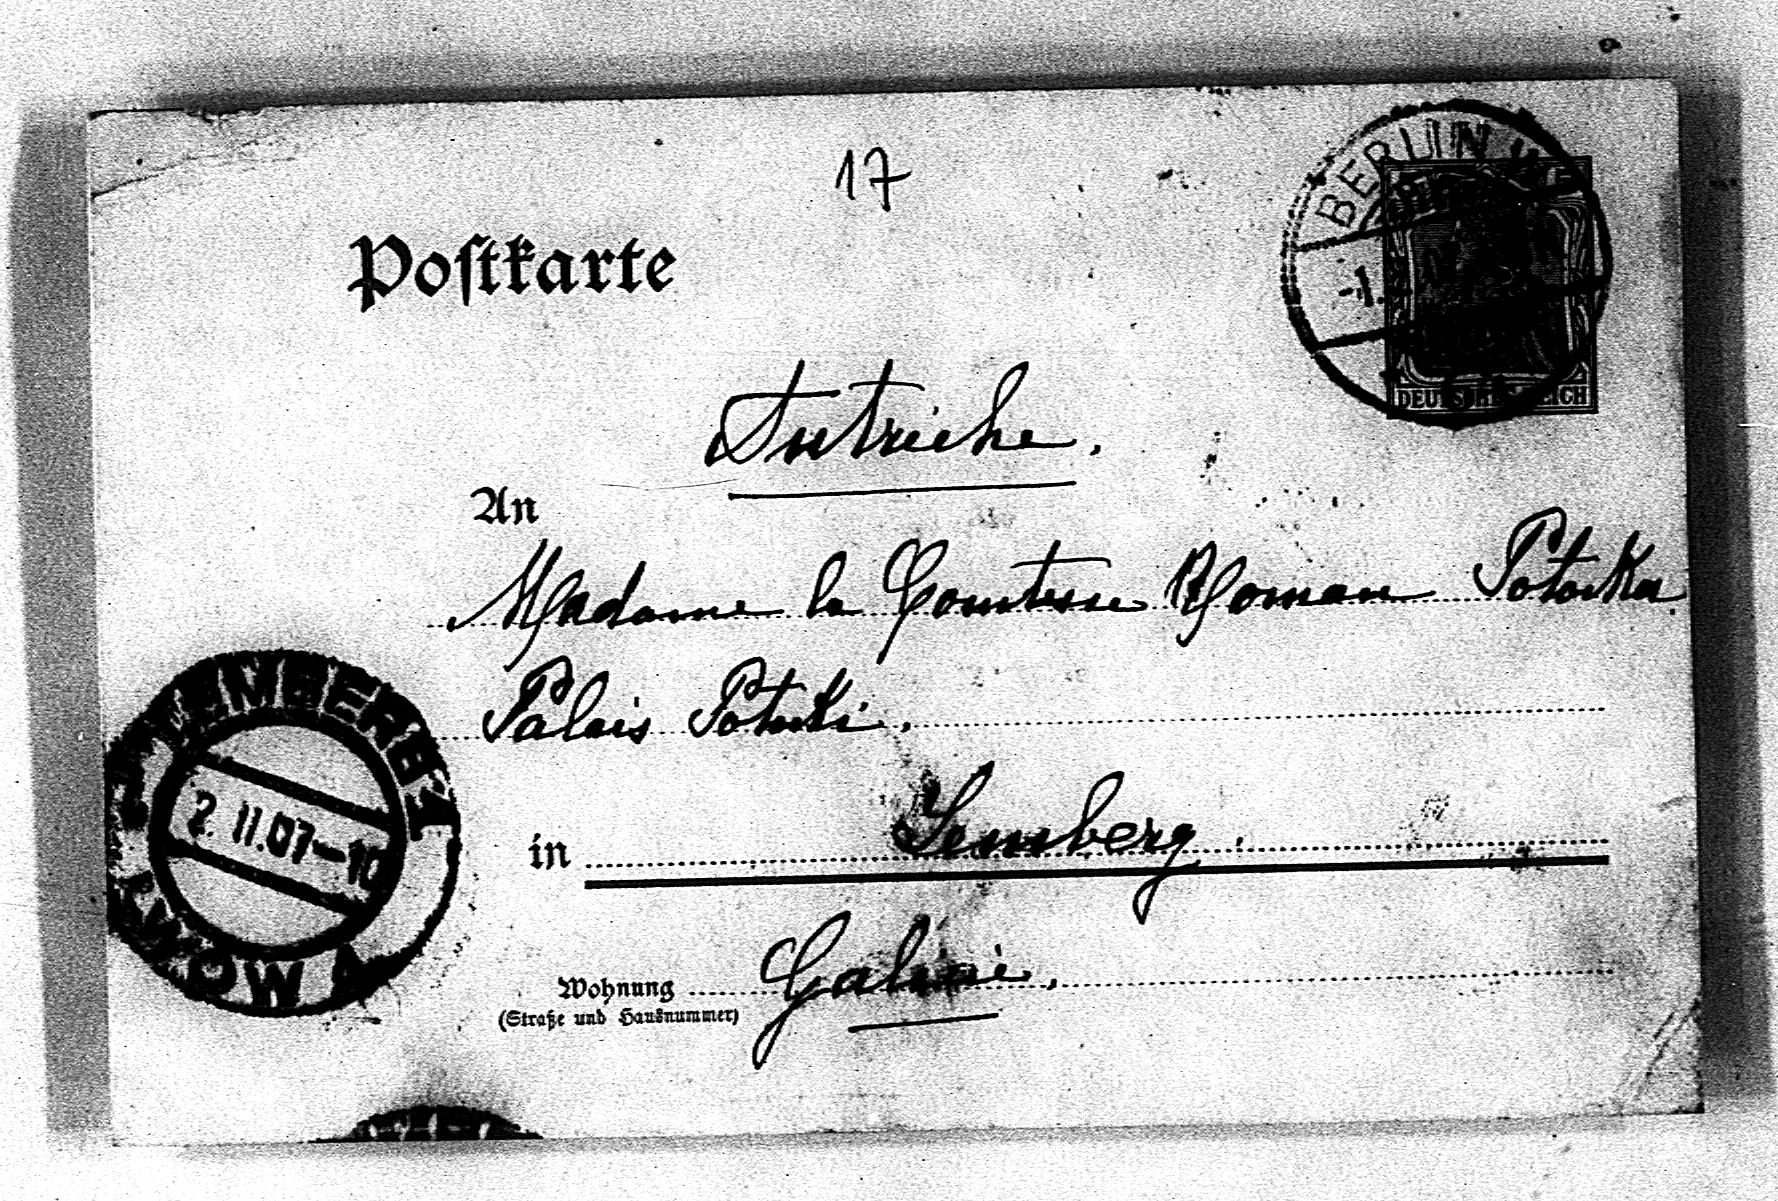 17
Postkarte
BERLIN W
-1.
DEUTSCHES REICH
Autriche.
An
Madame la Comtesse Roman Potocka.
Palais Potocki.
LEMBERG 1
2.11.07-10
LWOW
in Lemberg.
Wohnung Galicie,
(Straße und Hausnummer)